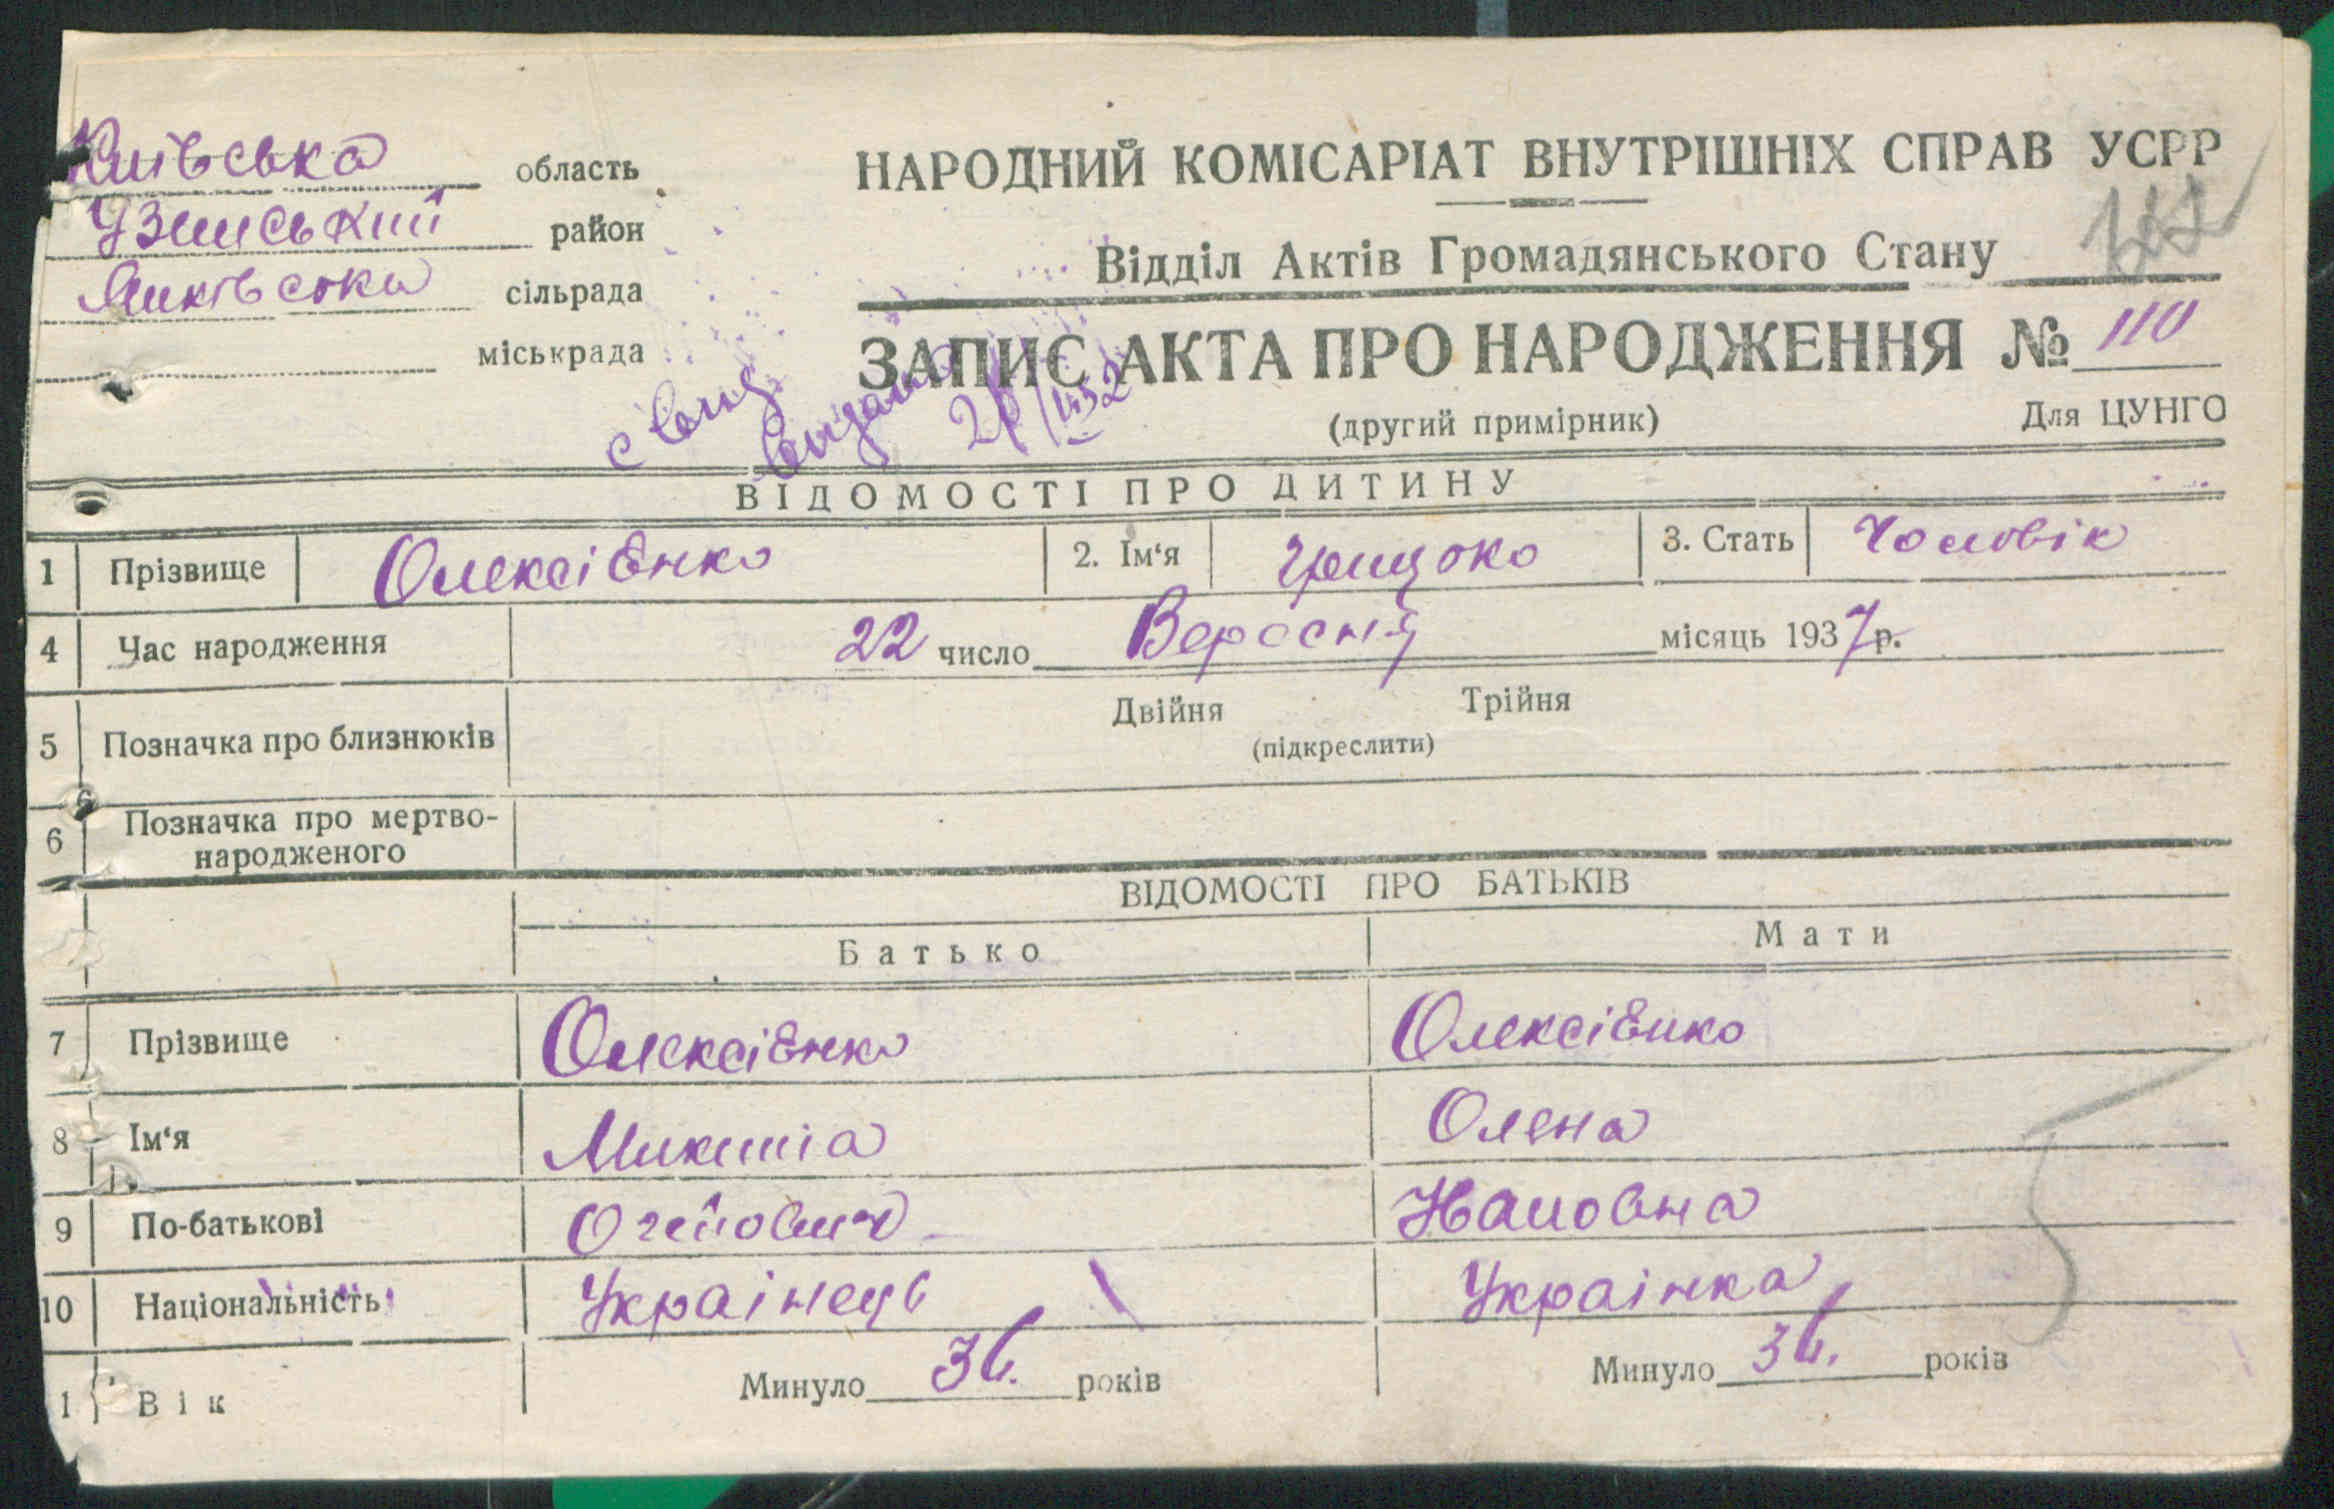 Київська область
Узинський район
Янківська сільрада
міськрада
НАРОДНИЙ КОМІСАРІАТ ВНУТРІШНІХ СПРАВ УСРР
Відділ Актів Громадянського Стану
ЗАПИС АКТА ПРО НАРОДЖЕННЯ № 110
(другий примірник)
Для ЦУНГО
ВІДОМОСТІ ПРО ДИТИНУ
1 Прізвище Олексієнко 2. Ім‘я Грицько 3. Стать Чоловік
4 Час народження 22 число Вересня місяць 1937 р.
5 Позначка про близнюків Двійня Трійня
(підкреслити)
6 Позначка про мертво-
народженого
ВІДОМОСТІ ПРО БАТЬКІВ
Батько Мати
7 Прізвище Олексієнко Олексієнко
8 Ім‘я Микита Олена
9 По-батькові
10 Національність Українець Українка
1 Вік Минуло 36. років Минуло 36. років